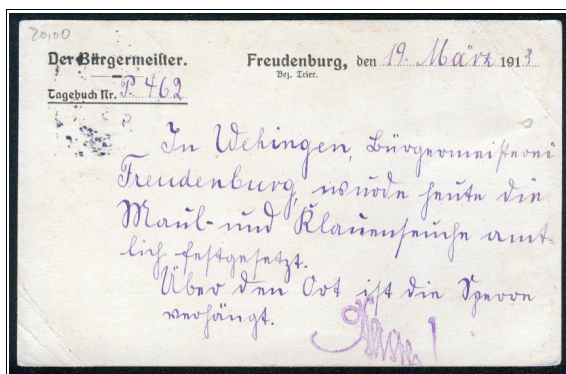 20,00
Der Bürgermeister.
Freudenburg, den 19. März 1913
Bez. Trier.
Tagebuch Nr. P. 462
In Wehingen, Bürgermeisterei
Freudenburg, wurde heute die
Maul- und Klauenseuche amt-
lich festgesetzt.
Über den Ort ist die Sperre
verhängt.